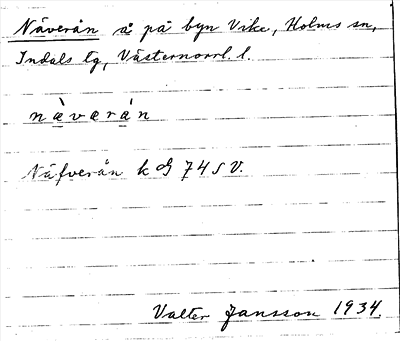 Näverån å på byn Vike, Holms sn,
Indals tg, Västernorrl. l.
nàverán
Näfverån k og 74 SV.
Valter Jansson 1934.